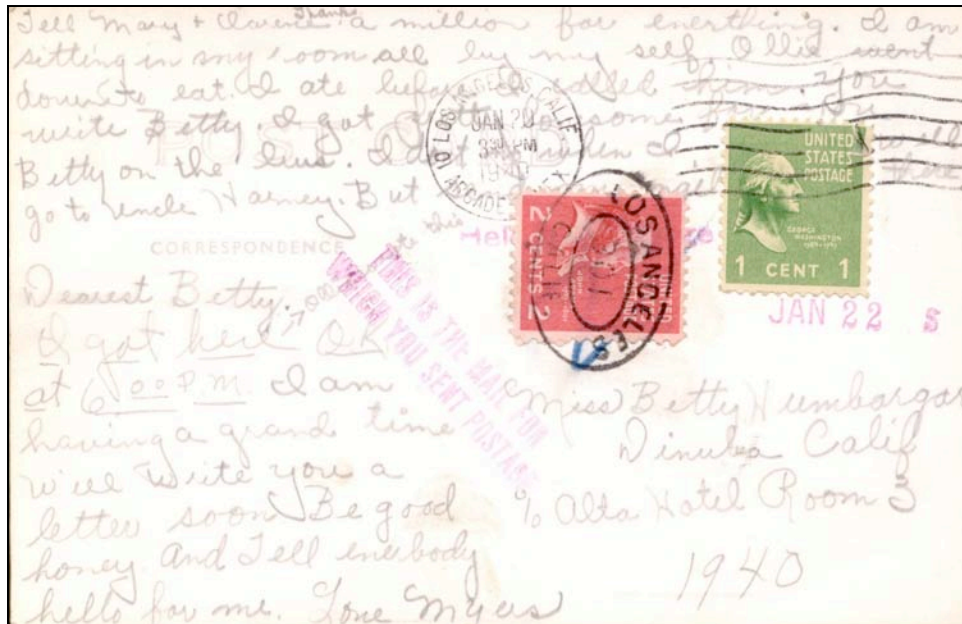 Tell Mary + Thanks a million for everthing. I am
sitting in my room all by my self. Ollie went
down to eat. I ate before I called them. You
write Betty. I got
Betty on the bus. I will
go to uncle Harney. But there
POST
CORRESPONDENCE
LOS ANGELES, CALIF.
JAN 20
3 30 PM
19
ARCADE
UNITED
STATES
POSTAGE
GEORGE
WASHINGTON
1 CENT 1
2 CENTS 2
UNITED
LOS ANGELES
THIS IS THE MAIL FOR
WHICH YOU SENT POSTAGE
JAN 22 S
Dearest Betty.
I got here OK
at 6 00 P.M. I am
having a grand time
Will write you a
letter soon Be good
honey. And Tell everbody
hello for me. Love Myers
Miss Betty Humbargar
Dinuba Calif
% Alta Hotel Room 3
1940